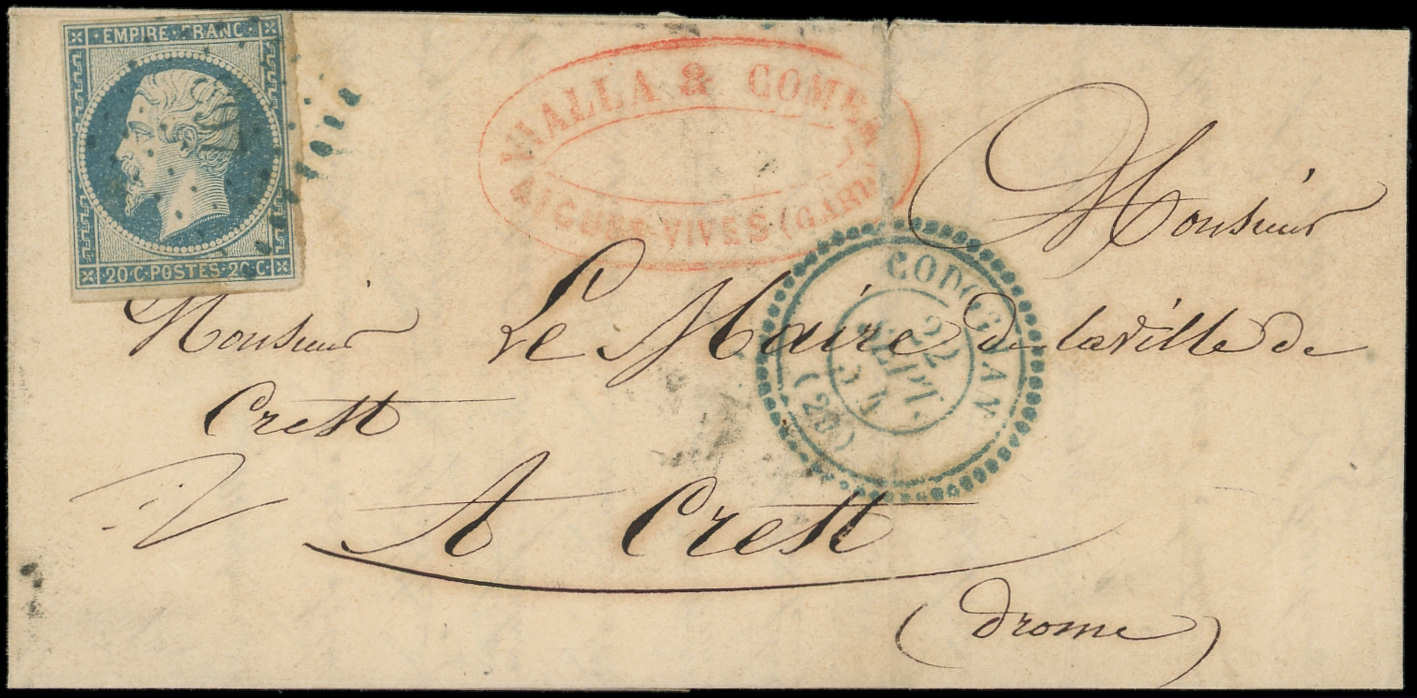 EMPIRE FRANC
20 C · POSTES · 20 C
VIALLA & COMP.
AIGUES-VIVES (GARD)
Monsieur
CODOGNAN
22
SEPT.
54
(29)
Monsieur Le Maire de la ville de
Crest
A Crest
(drome)